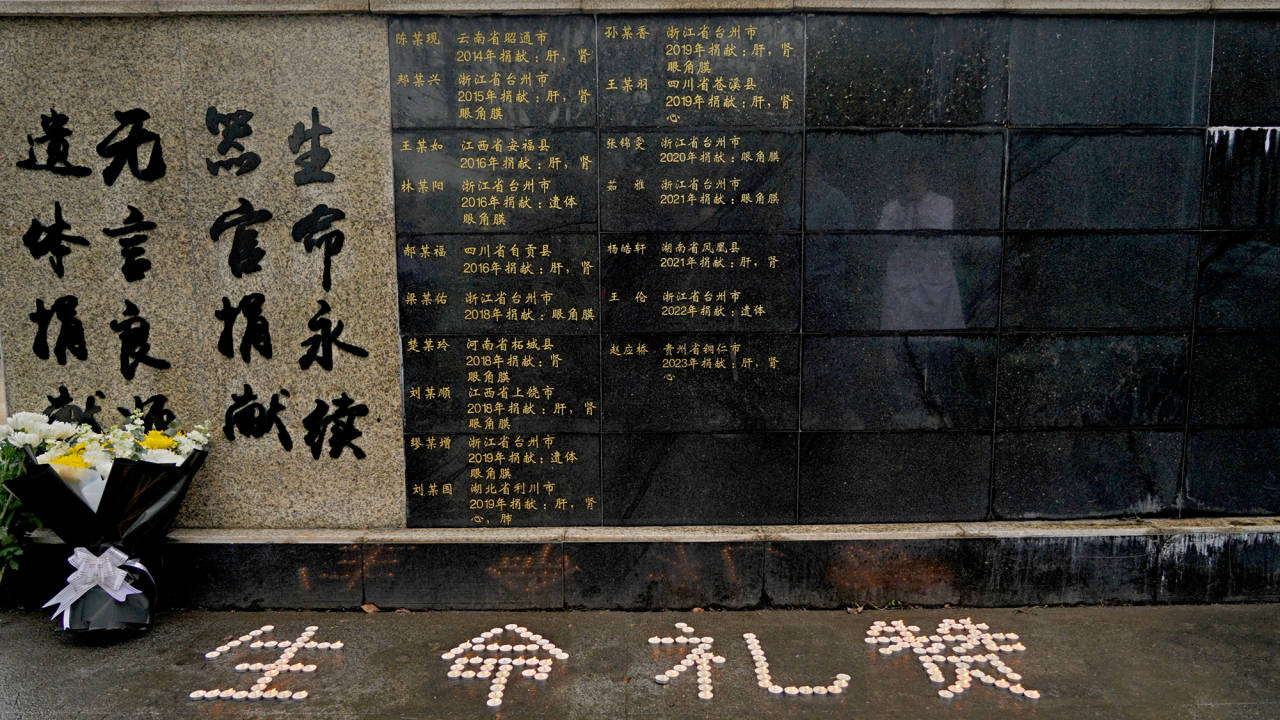 生命永续
器官捐献
无言良师
遗体捐献
陈某现 云南省昭通市
2014年捐献：肝，肾
郏某兴 浙江省台州市
2015年捐献：肝，肾
眼角膜
王某如 江西省安福县
2016年捐献：肝，肾
林某阳 浙江省台州市
2016年捐献：遗体
眼角膜
郝某福 四川省自贡县
2016年捐献：肝，肾
梁某佑 浙江省台州市
2018年捐献：眼角膜
楚某玲 河南省柘城县
2018年捐献：肾
眼角膜
刘某顺 江西省上饶市
2018年捐献：肝，肾
眼角膜
缪某增 浙江省台州市
2019年捐献：遗体
眼角膜
刘某国 湖北省利川市
2019年捐献：肝，肾
心，肺
孙某香 浙江省台州市
2019年捐献：肝，肾
眼角膜
王某羽 四川省苍溪县
2019年捐献：肝，肾
心
张锦雯 浙江省台州市
2020年捐献：眼角膜
茹 雅 浙江省台州市
2021年捐献：眼角膜
杨皓轩 湖南省凤凰县
2021年捐献：肝，肾
王 伦 浙江省台州市
2022年捐献：遗体
赵应桥 贵州省铜仁市
2023年捐献：肝，肾
心
生命礼赞